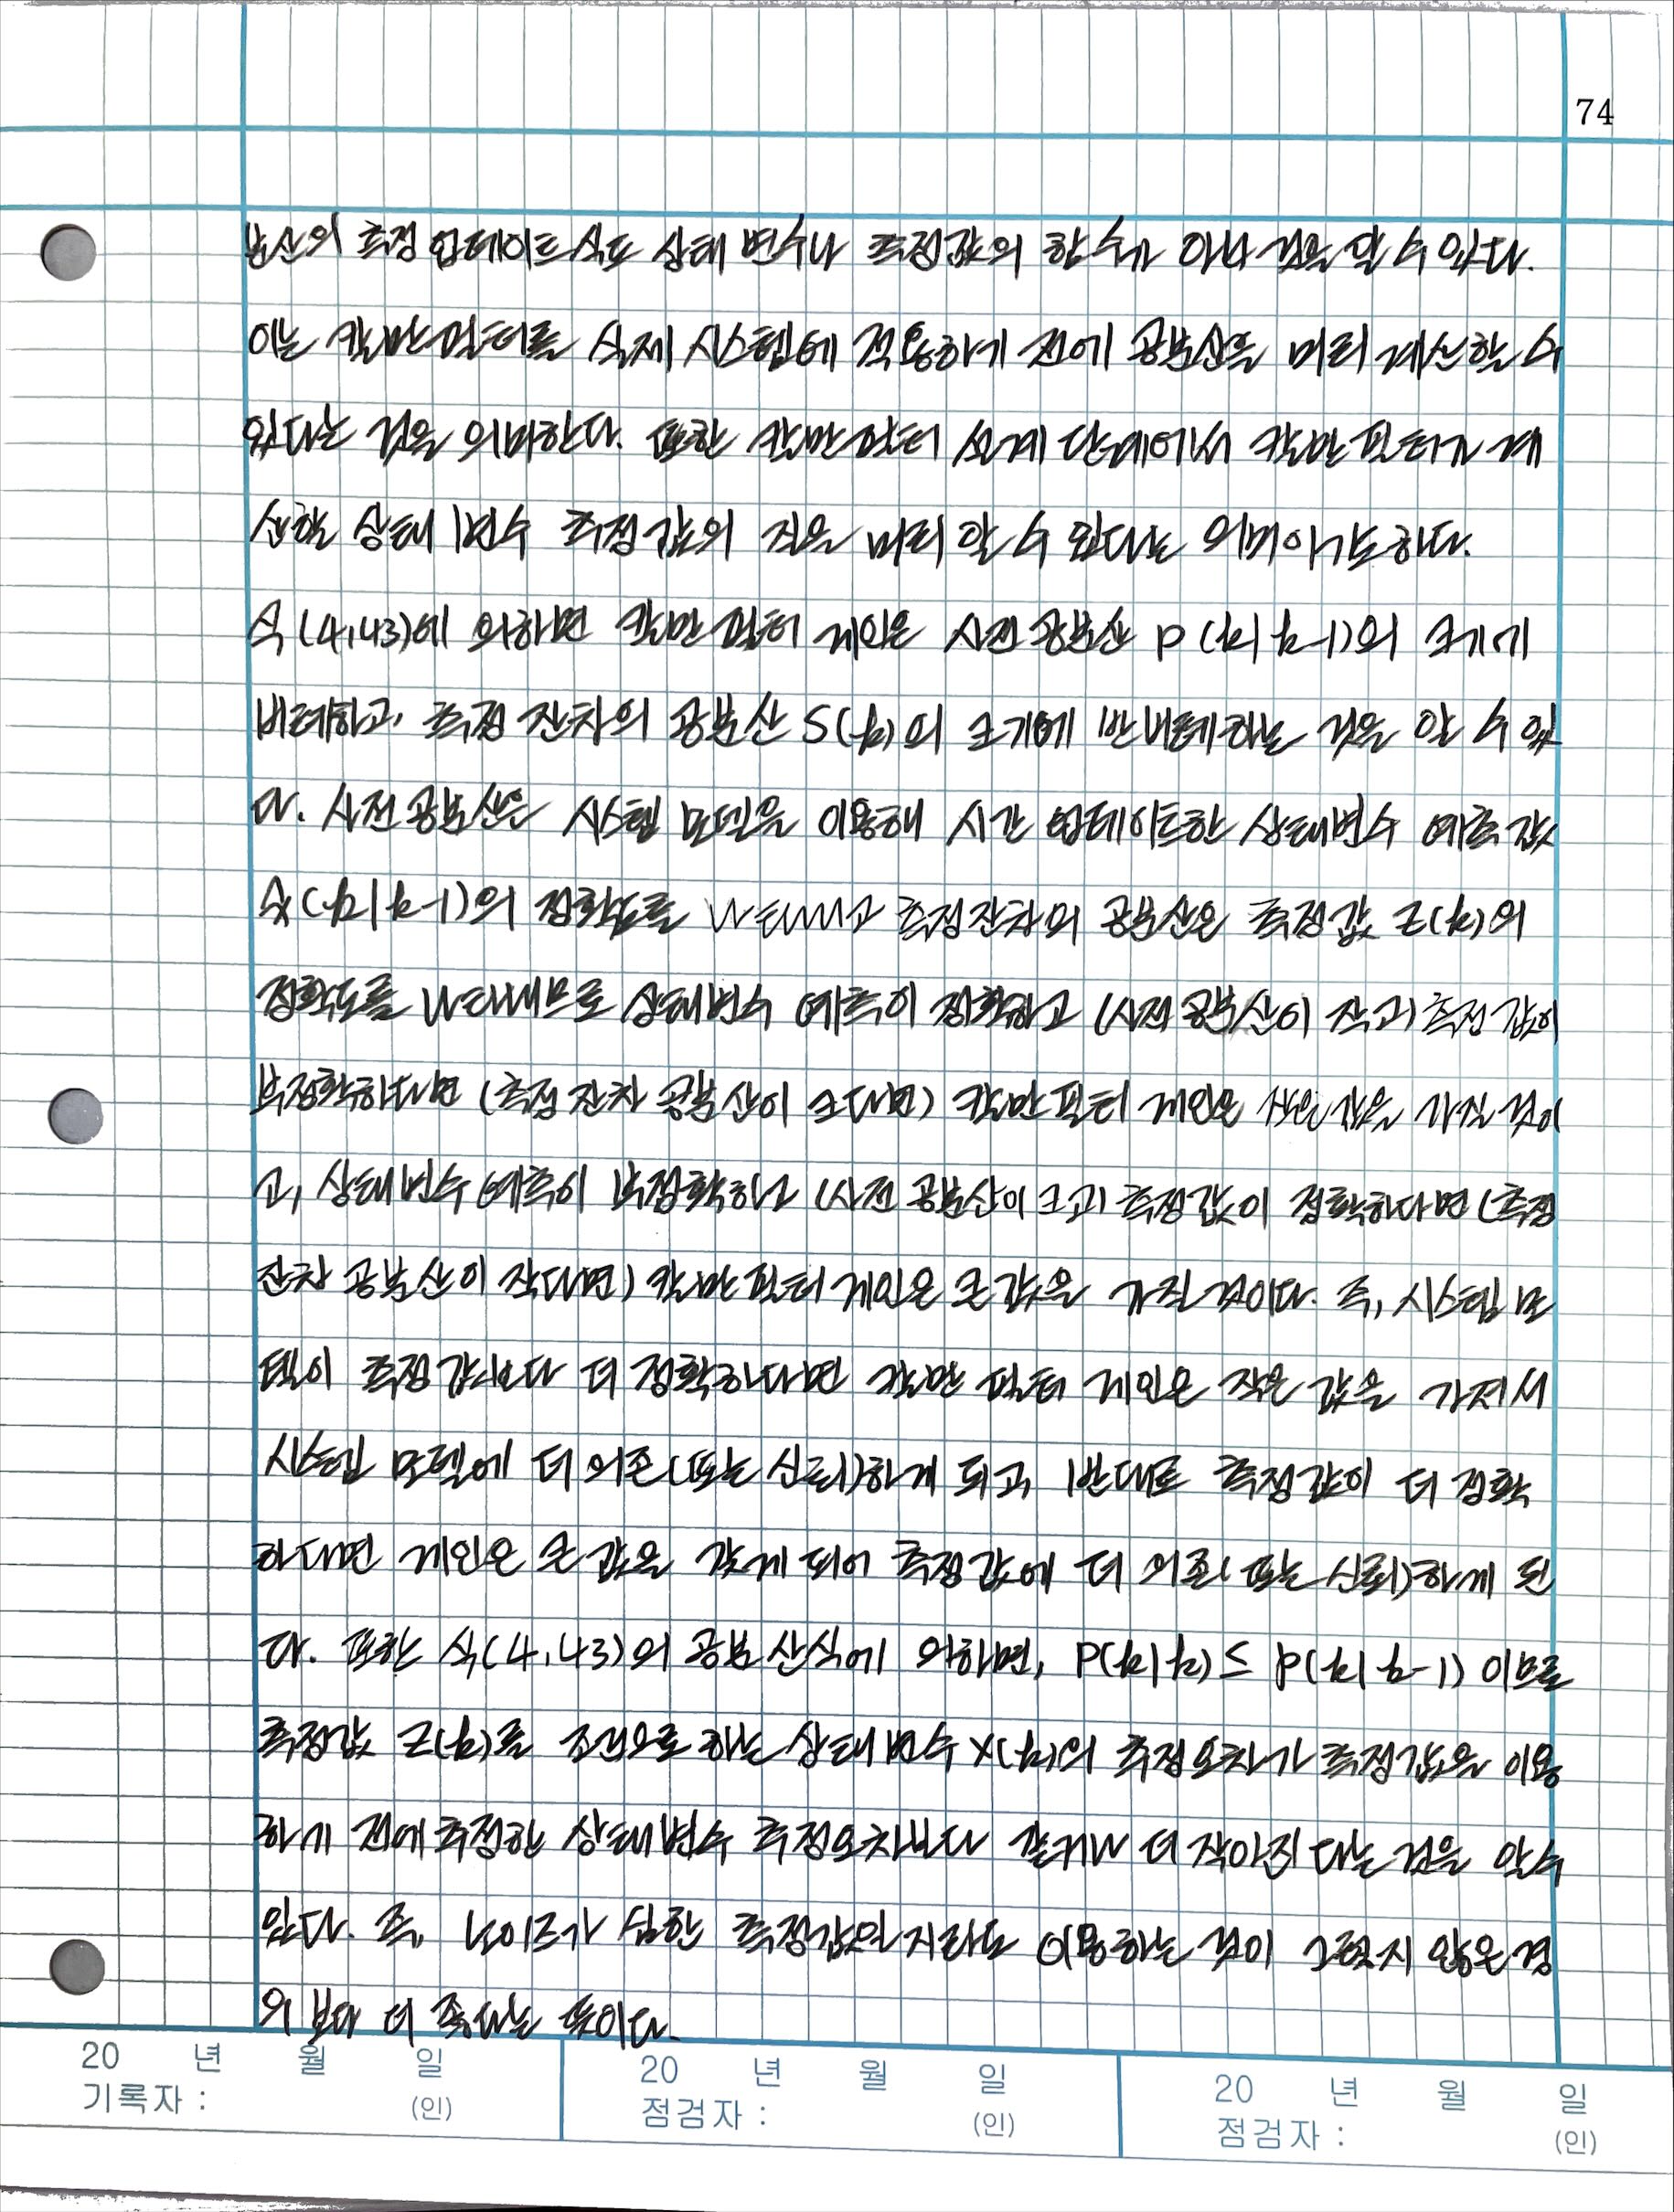 74
분산의 측정 업데이트식도 상태 변수나 측정값의 함수가 아닌 것을 알 수 있다.
이는 칼만 필터를 실제 시스템에 적용하기 전에 공분산을 미리 계산할 수
있다는 것을 의미한다. 또한 칼만 필터 설계 단계에서 칼만 필터가 계
산할 상태 변수 추정값의 질을 미리 알 수 있다는 의미이기도 하다.
식(4.43)에 의하면 칼만 필터 게인은 사전 공분산 P(k|k-1)의 크기에
비례하고, 측정 잔차의 공분산 S(k)의 크기에 반비례하는 것을 알 수 있
다. 사전 공분산은 시스템 모델을 이용해 시간 업데이트한 상태변수 예측 값
x̂(k|k-1)의 정확도를 나타내고 측정잔차의 공분산은 측정값 z(k)의
정확도를 나타내므로 상태변수 예측이 정확하고 (사전 공분산이 작고) 측정 값이
부정확하다면 (측정 잔차 공분산이 크다면) 칼만 필터 게인은 작은 값을 가질 것이
고, 상태변수 예측이 부정확하고 (사전 공분산이 크고) 측정값이 정확하다면 (측정
잔차 공분산이 작다면) 칼만 필터 게인은 큰 값을 가질 것이다. 즉, 시스템 모
델이 측정 값보다 더 정확하다면 칼만 필터 게인은 작은 값을 가져서
시스템 모델에 더 의존(또는 신뢰)하게 되고, 반대로 측정값이 더 정확
하다면 게인은 큰 값을 갖게 되어 측정값에 더 의존(또는 신뢰)하게 된
다. 또한 식(4.43)의 공분산식에 의하면, P(k|k) ≤ P(k|k-1) 이므로
측정값 z(k)를 조건으로 하는 상태 변수 x(k)의 추정오차가 측정값을 이용
하기 전에 추정한 상태변수 추정오차보다 같거나 더 작아진다는 것을 알 수
있다. 즉, 노이즈가 심한 측정값일지라도 이용하는 것이 그렇지 않은 경
우 보다 더 좋다는 뜻이다.
20 년 월 일
기록자 : (인)
20 년 월 일
점검자 : (인)
20 년 월 일
점검자 : (인)